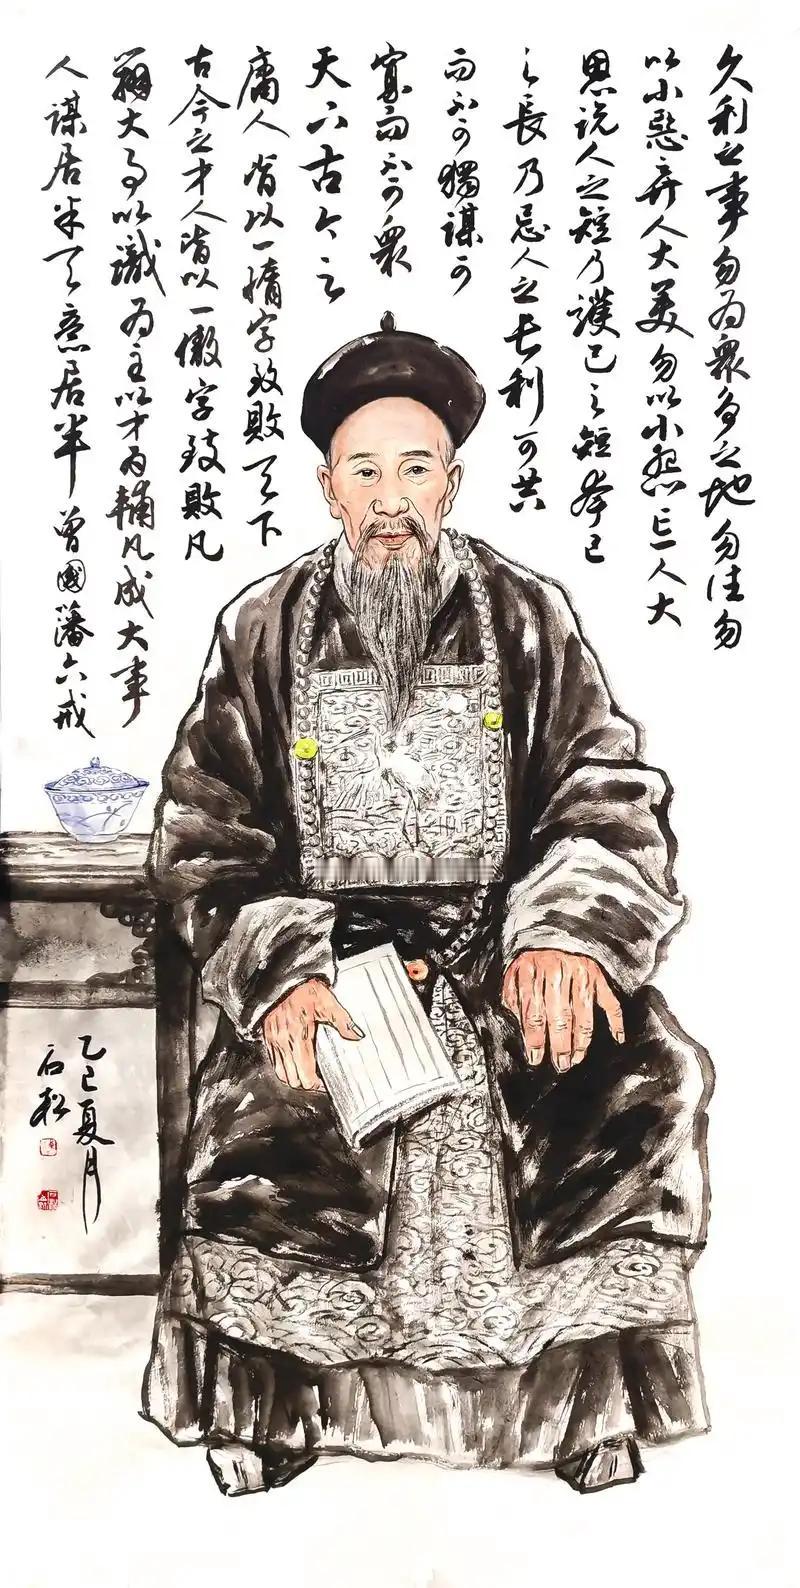 久利之事勿为衆争之地勿往勿
以小惡弃人大美勿以小怨忘人大
恩说人之短乃護己之短夸己
之長乃忌人之长利可共
而不可獨謀可
寡而不可衆
天下古今之
庸人皆以一惰字致敗天下
古今之才人皆以一傲字致敗凡
辦大事以識为主以才为輔凡成大事
人谋居半天意居半曾國藩六戒
乙巳夏月
石松